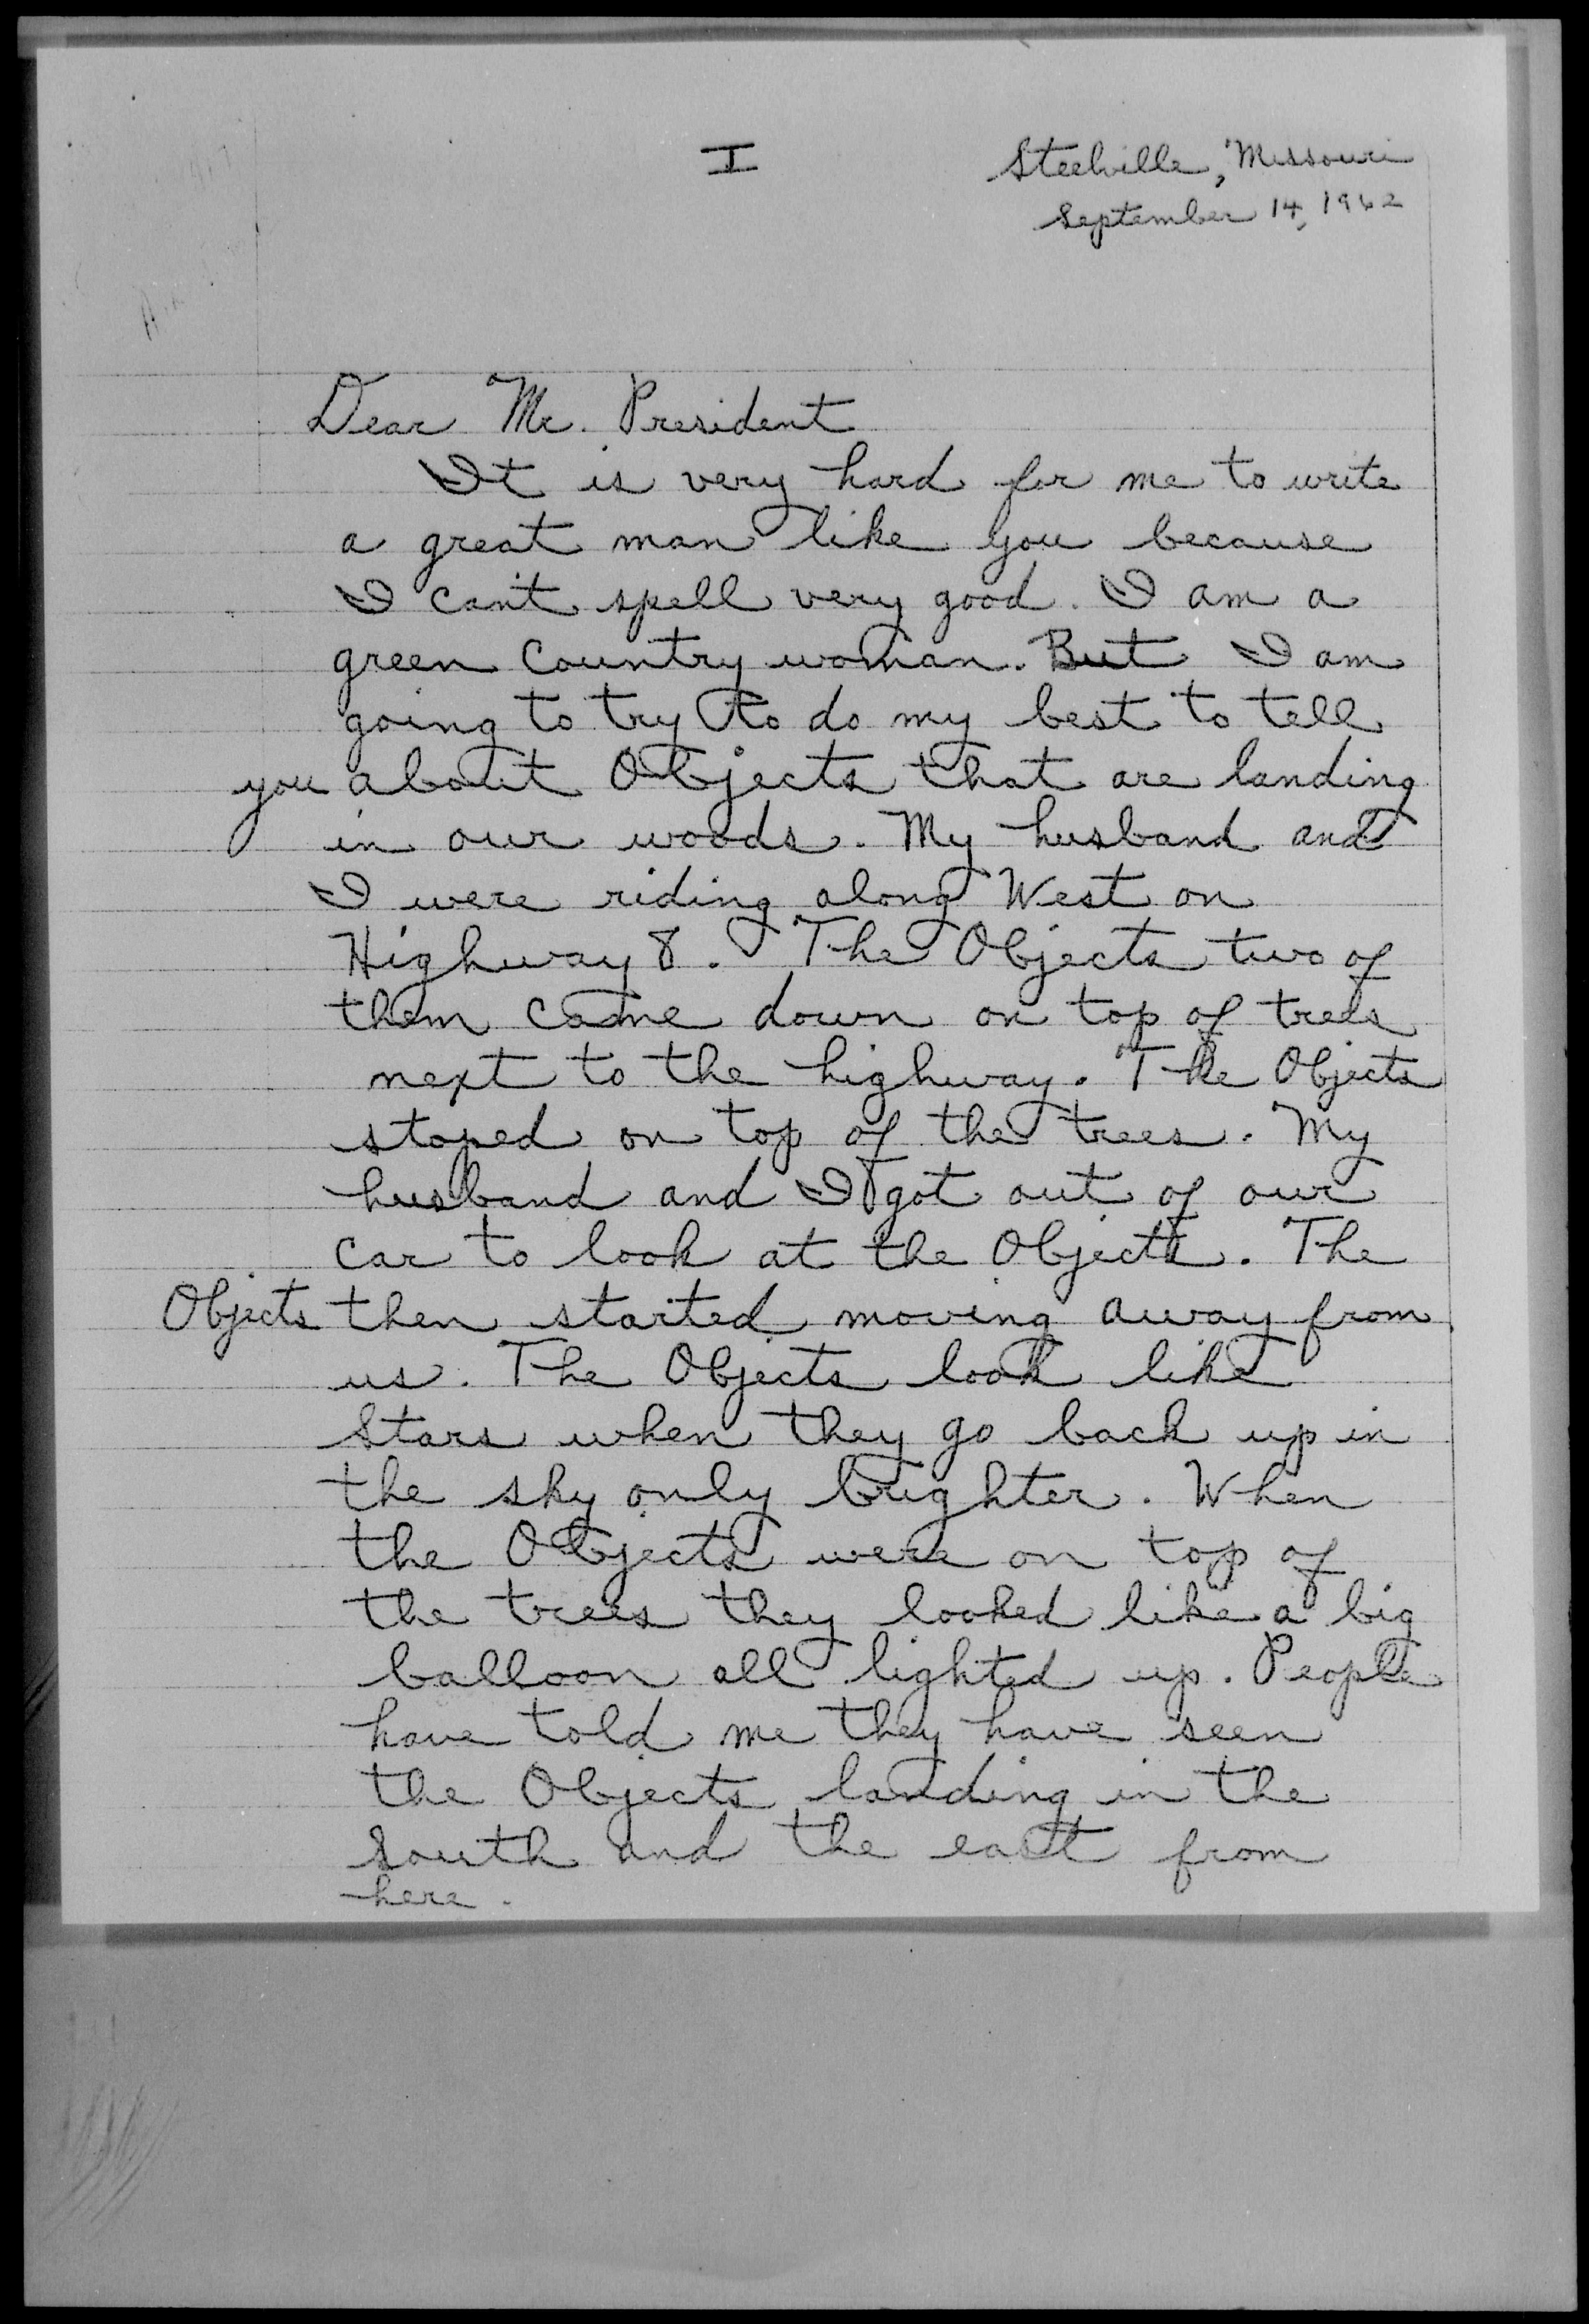 I
Steelville, Missouri
September 14, 1962
Dear Mr. President
It is very hard for me to write
a great man like you because
I can't spell very good. I am a
green Country woman. But I am
going to try to do my best to tell
you about Objects that are landing
in our woods. My husband and
I were riding along West on
Highway 8. The Objects two of
them came down on top of trees
next to the highway. The Objects
stoped on top of the trees. My
husband and I got out of our
car to look at the Objects. The
Objects then started moving away from
us. The Objects look like
Stars when they go back up in
the sky only brighter. When
the Objects were on top of
the trees they looked like a big
balloon all lighted up. People
have told me they have seen
the Objects landing in the
South and the east from
here.